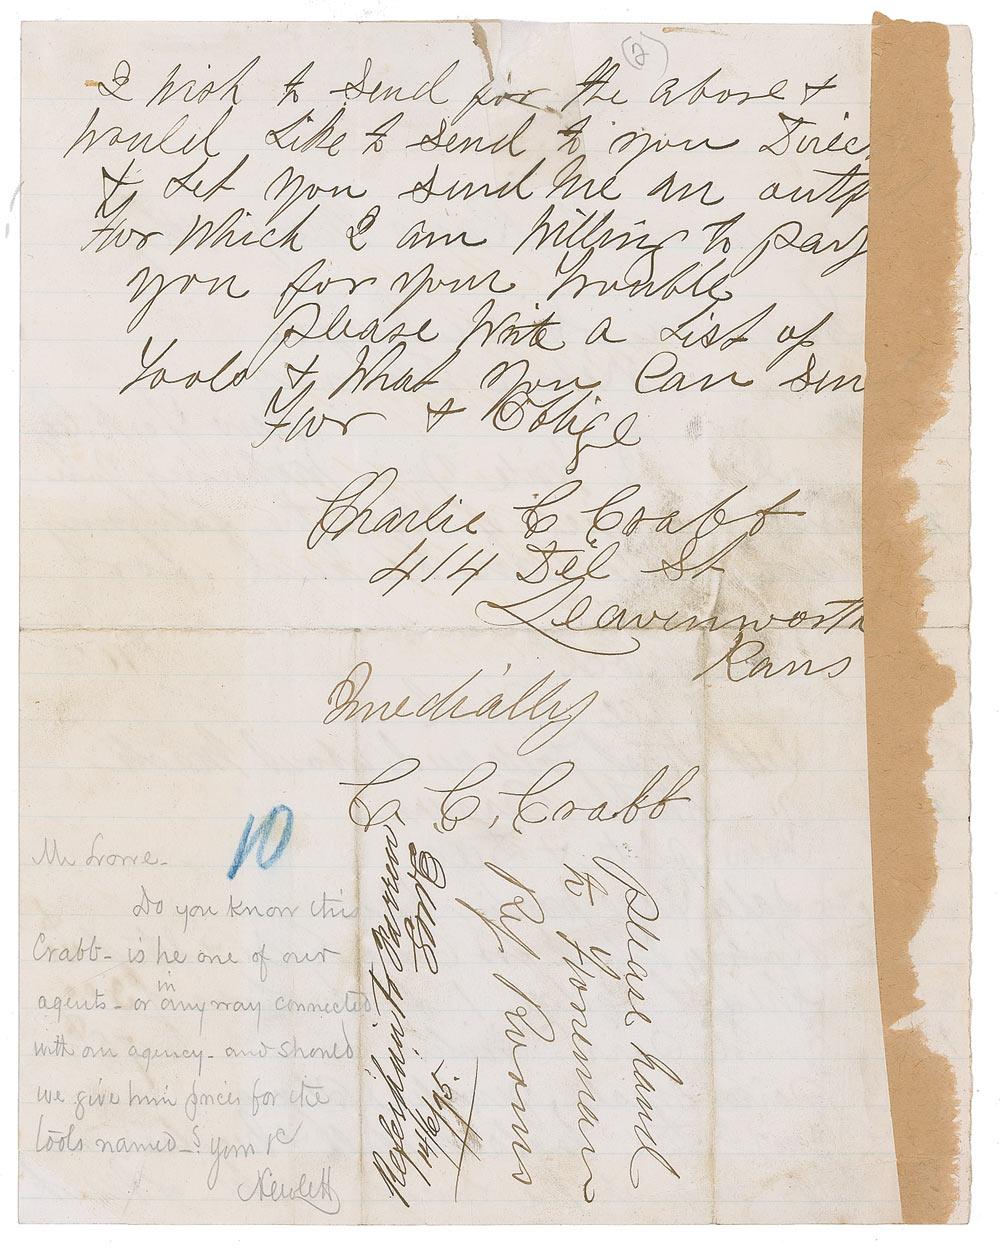 (2)
I wish to send for the above +
would Like to send to you Direc
+ Let you send me an outf
For which I am Willing to pay
you for your Trouble
please Write a List of
Tools + What you Can Sen
For + Oblige
Charlie C Crabb
414 Del St
Leavenworth
Kans
Imedially
C. C. Crabb
please hand
to Foreman
Rf. Rooms
10
Mr Lowe-
Do you know this
Crabb- is he one of our
agents- or in any way connected
with an agency- and should
we give him prices for the
tools named-? Yours &c
Newlett